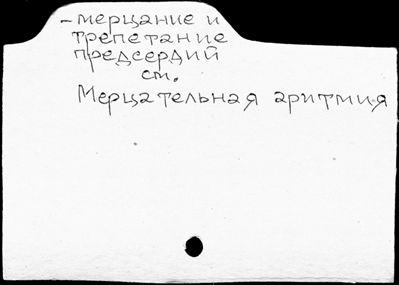 - мерцание и
трепетание
предсердий
см.
Мерцательная аритмия